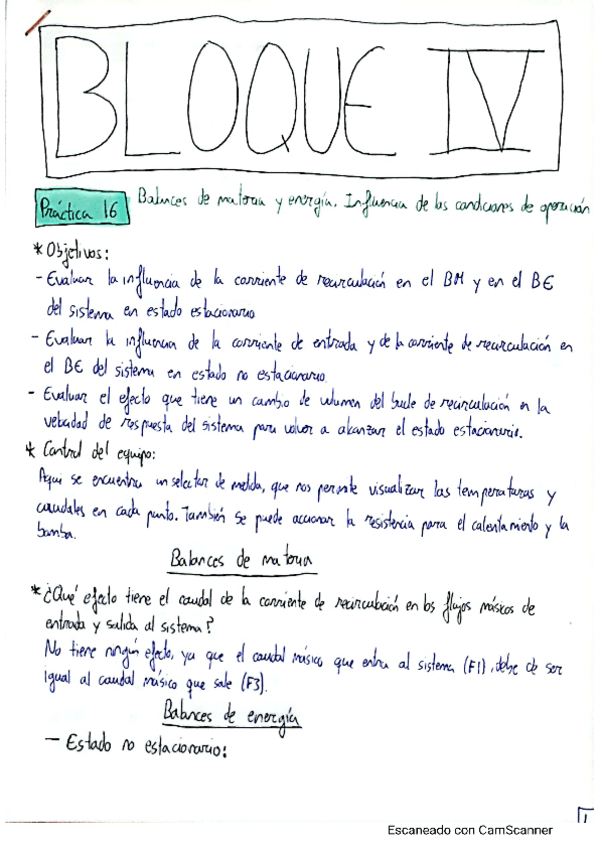 BLOQUE IV
Práctica 16
Balances de materia y energía. Influencia de las condiciones de operación
* Objetivos:
- Evaluar la influencia de la corriente de recirculación en el BM y en el BE
del sistema en estado estacionario
- Evaluar la influencia de la corriente de entrada y de la corriente de recirculación en
el BE del sistema en estado no estacionario.
- Evaluar el efecto que tiene un cambio de volumen del bucle de recirculación en la
velocidad de respuesta del sistema para volver a alcanzar el estado estacionario.
* Control del equipo:
Aqui se encuentra un selector de medida, que nos permite visualizar las temperaturas y
caudales en cada punto. También se puede accionar la resistencia para el calentamiento y la
bomba.
Balances de materia
* ¿Qué efecto tiene el caudal de la corriente de recirculación en los flujos másicos de
entrada y salida al sistema?
No tiene ningún efecto, ya que el caudal másico que entra al sistema (F1), debe de ser
igual al caudal másico que sale (F3).
Balances de energía
- Estado no estacionario:
1
Escaneado con CamScanner